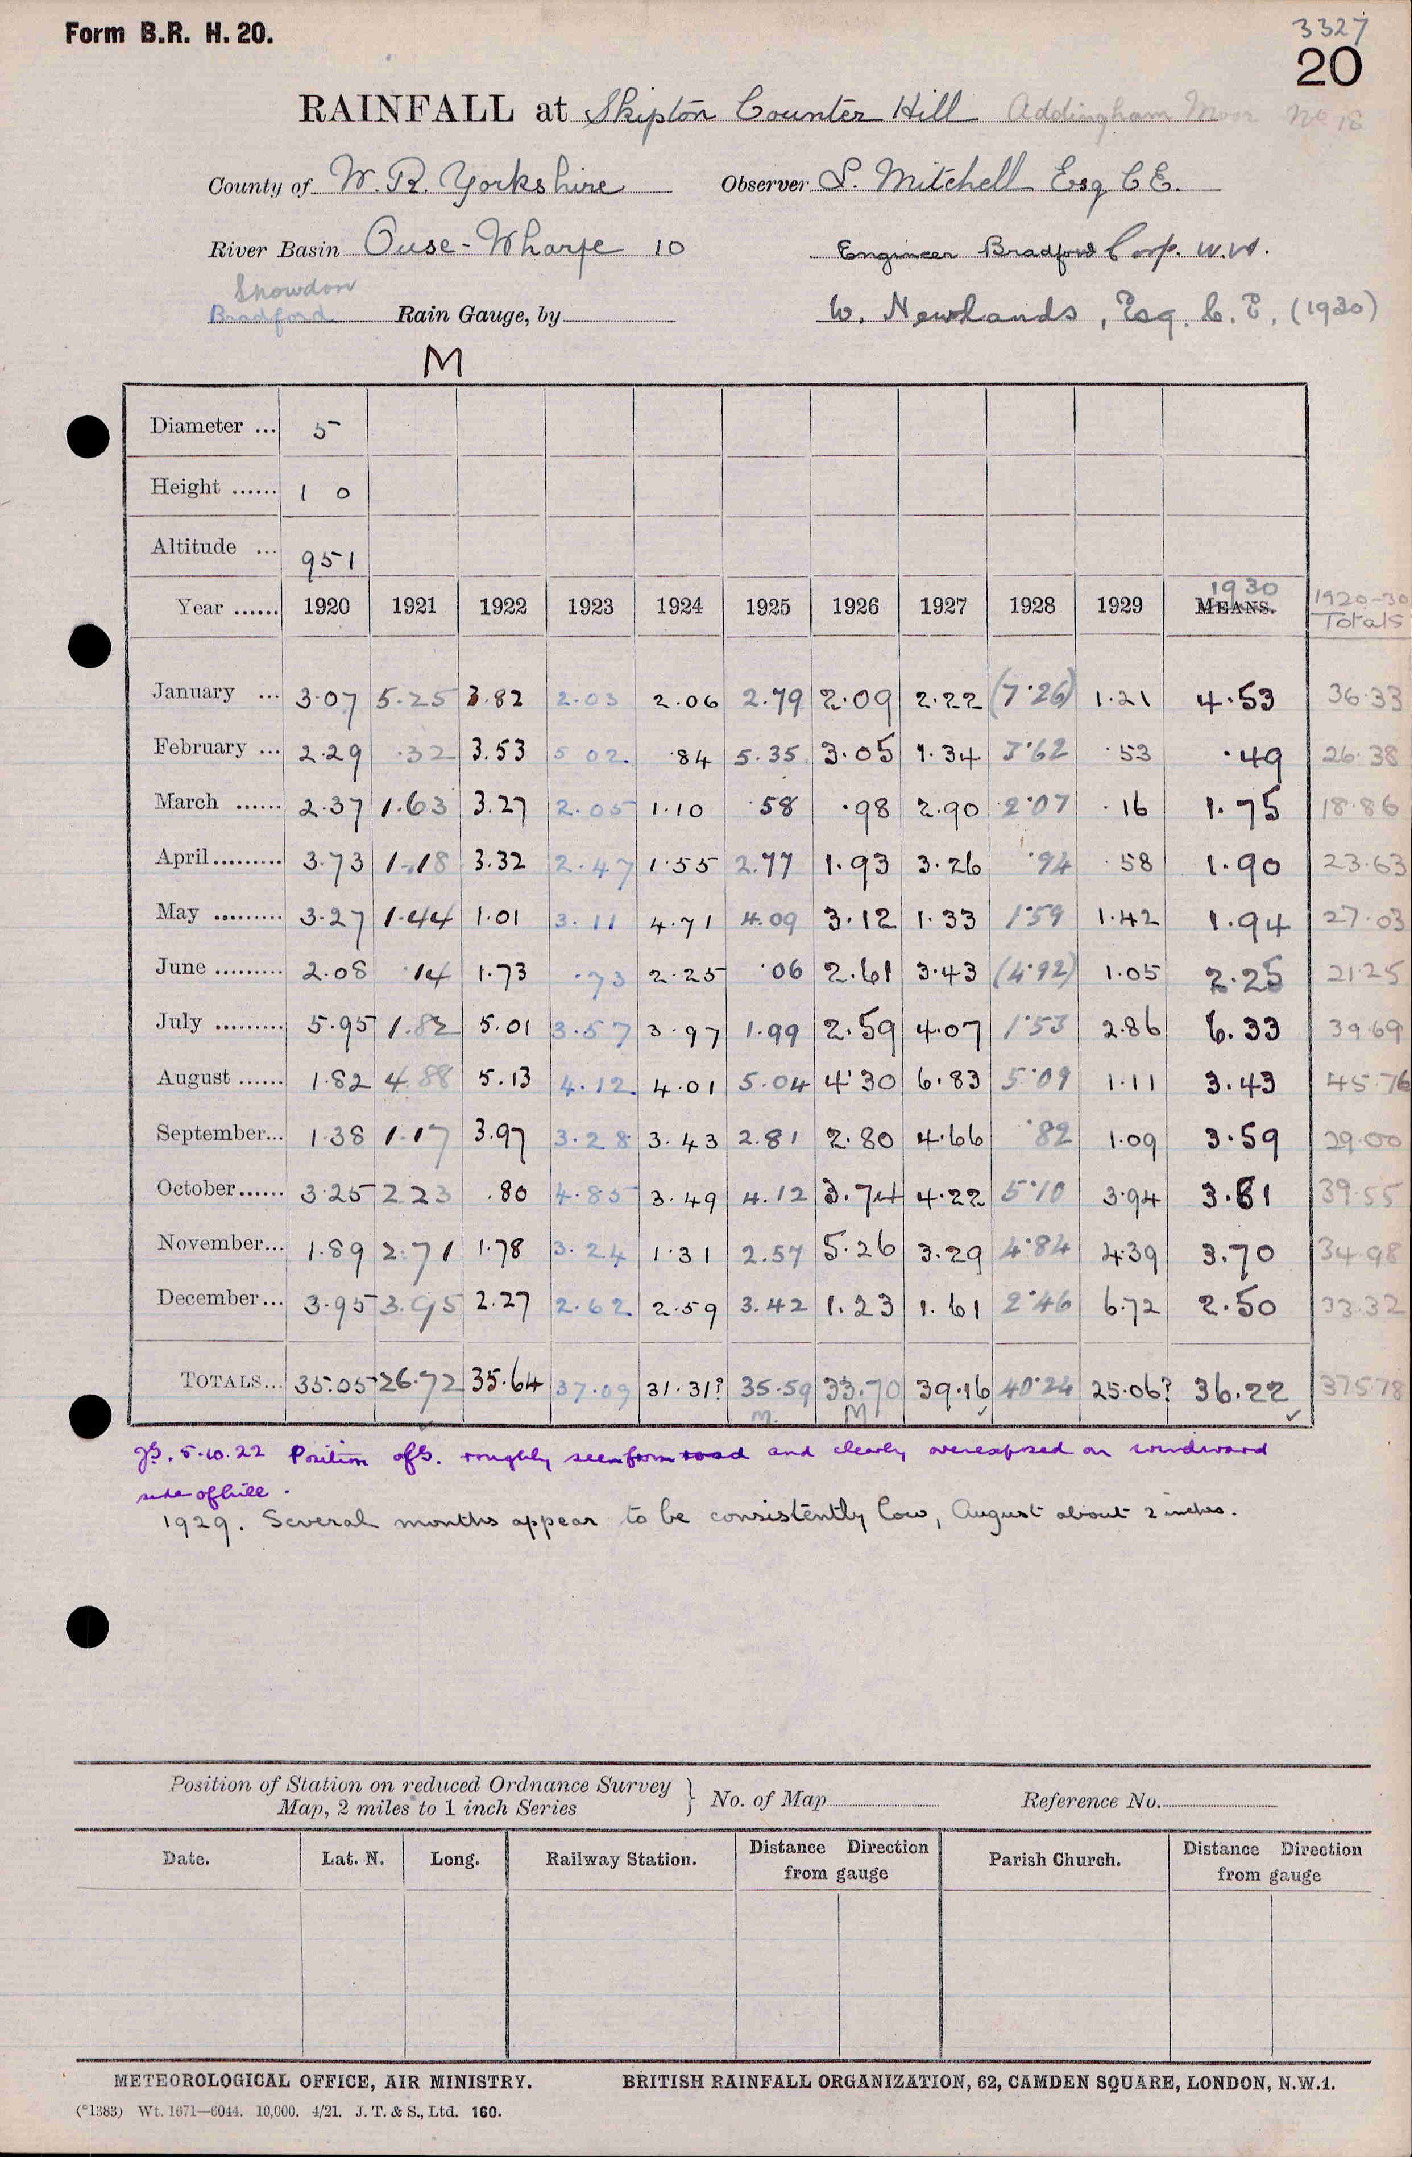 Form B.R. H. 20.
3327
20
RAINFALL at Skipton Counter Hill Addingham Moor No 18
County of W. R. Yorkshire Observer L. Mitchell Esq C E.
River Basin Ouse - Wharfe 10 Engineer Bradford Corp. W.W.
Snowdon
Bradford Rain Gauge, by W. Newlands, Esq. C. E. (1930)
M
Diameter ... 5
Height ...... 1 0
Altitude ... 951
1930
Year ...... 1920 1921 1922 1923 1924 1925 1926 1927 1928 1929 MEANS. 1920-30 Totals
January ... 3.07 5.25 3.82 2.03 2.06 2.79 2.09 2.22 (7.26) 1.21 4.53 36.33
February ... 2.29 .32 3.53 5 02. .84 5.35 3.05 1.34 3.62 .53 .49 26.38
March ...... 2.37 1.63 3.27 2.05 1.10 .58 .98 2.90 2.07 .16 1.75 18.86
April......... 3.73 1.18 3.32 2.47 1.55 2.77 1.93 3.26 .94 .58 1.90 23.63
May ......... 3.27 1.44 1.01 3.11 4.71 4.09 3.12 1.33 1.59 1.42 1.94 27.03
June ......... 2.08 .14 1.73 .73 2.25 .06 2.61 3.43 (4.92) 1.05 2.25 21.25
July ......... 5.95 1.82 5.01 3.57 3.97 1.99 2.59 4.07 1.53 2.86 6.33 39.69
August ...... 1.82 4.88 5.13 4.12. 4.01 5.04 4.30 6.83 5.09 1.11 3.43 45.76
September... 1.38 1.17 3.97 3.28 3.43 2.81 2.80 4.66 .82 1.09 3.59 29.00
October...... 3.25 2.23 .80 4.85 3.49 4.12 3.74 4.22 5.10 3.94 3.81 39.55
November... 1.89 2.71 1.78 3.24 1.31 2.57 5.26 3.29 4.84 4.39 3.70 34.98
December... 3.95 3.95 2.27 2.62 2.59 3.42 1.23 1.61 2.46 6.72 2.50 33.32
TOTALS... 35.05 26.72 35.64 37.09 31.31? 35.59 33.70 39.16 40.24 25.06? 36.22 375.78
M. M
5.10.22 Position of G. roughly seen from road and clearly overexposed on windward
side of hill.
1929. Several months appear to be consistently low, August about 2 inches.
Position of Station on reduced Ordnance Survey
Map, 2 miles to 1 inch Series } No. of Map Reference No.
Date. Lat. N. Long. Railway Station. Distance Direction from gauge Parish Church. Distance Direction from gauge
METEOROLOGICAL OFFICE, AIR MINISTRY. BRITISH RAINFALL ORGANIZATION, 62, CAMDEN SQUARE, LONDON, N.W.1.
(*1383) Wt. 1671—6044. 10,000. 4/21. J. T. & S., Ltd. 160.